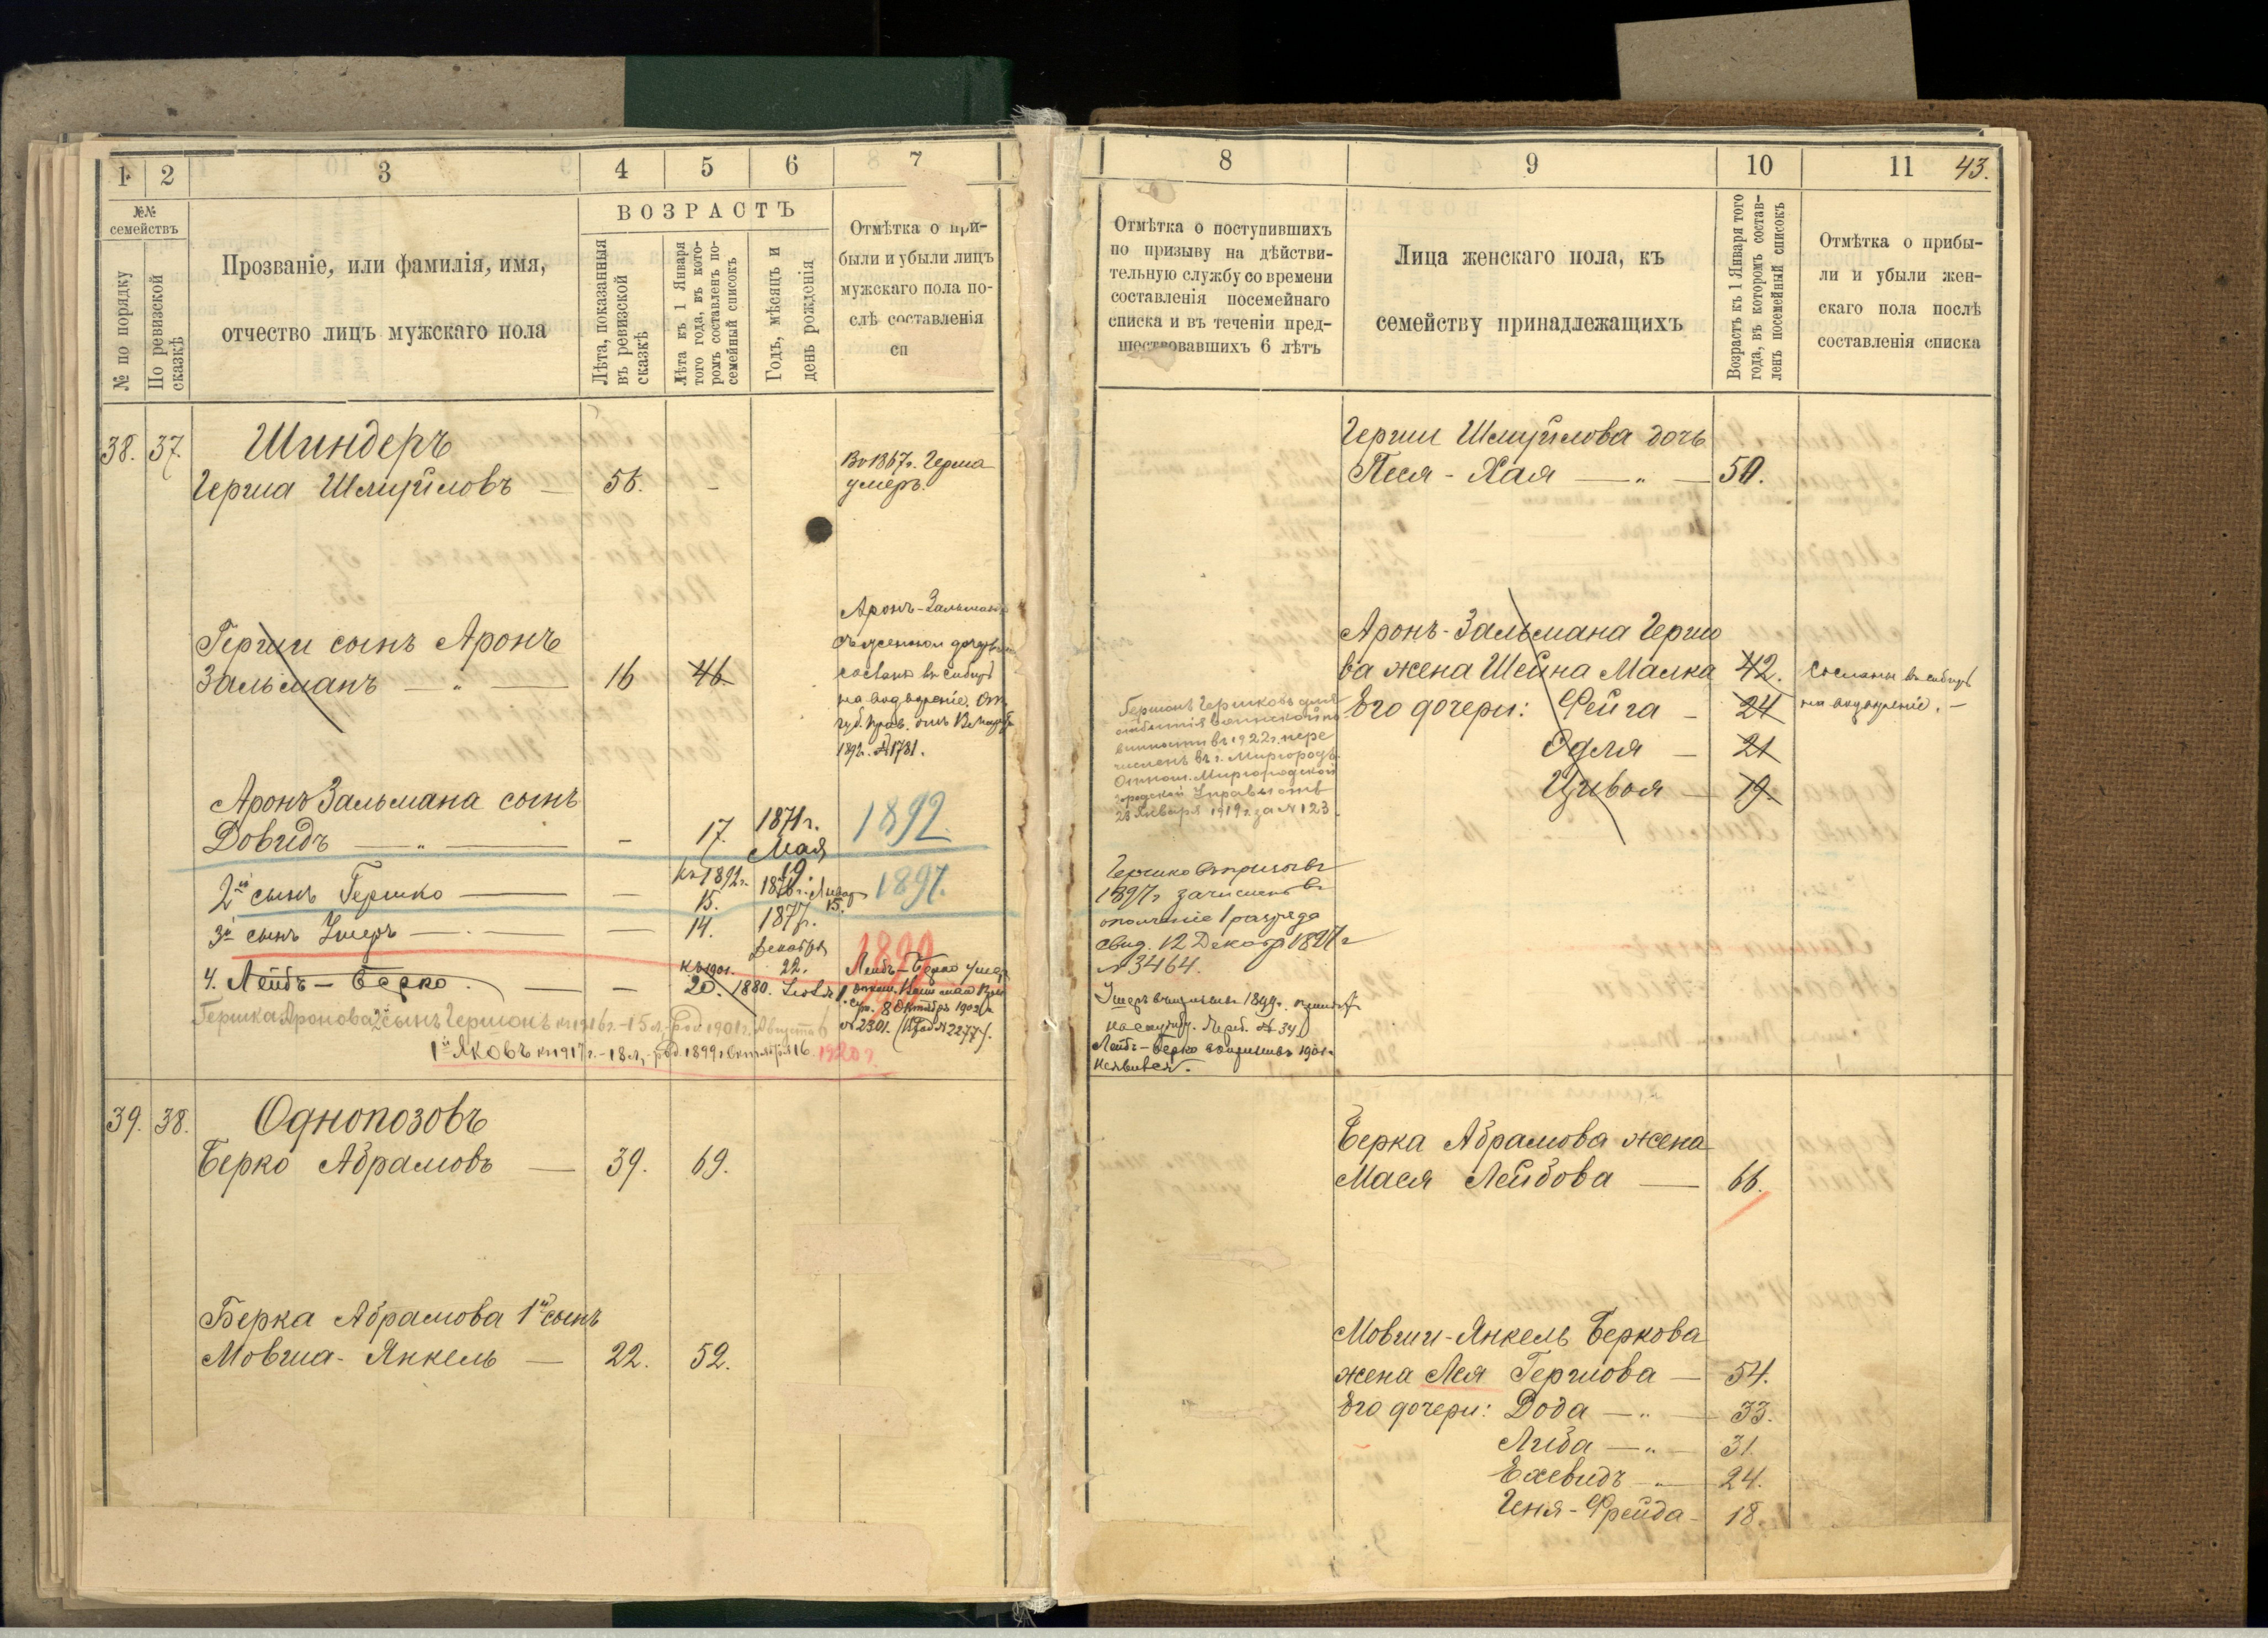 1 2 3 4 5 6 7
№№ семействъ
№ по порядку
По ревизской сказкѣ
Прозваніе, или фамилія, имя,
отчество лицъ мужскаго пола
ВОЗРАСТЪ
Лѣта, показанныя
въ ревизской
сказкѣ
Лѣта къ 1 Января
того года, въ кото-
ромъ составленъ по-
семейный списокъ
Годъ, мѣсяцъ и
день рожденія
Отмѣтка о при-
были и убыли лицъ
мужскаго пола по-
слѣ составленія
сп
38. 37. Шиндеръ
Герша Шмуйловъ — 56. -
Въ 1867 г. Герша
умеръ.
Герши сынъ Аронъ
Зальманъ — „ — 16 46.
Аронъ-Зальманъ
съ женою
сосланъ въ Сибирь
на водвореніе.
1892 г. № 1781.
Аронъ Зальмана сынъ
Довидъ — „ — - 17. 1871 г.
Мая
19.
1892
2й сынъ Гершко — — къ 1892 г.
15. 1876 г. Январ
15.
1897.
3й сынъ Ушеръ — . — — 14. 1877 г.
Декабря
22.
1899
4. Лейбъ-Берко. — — къ 1901.
20. 1880.
Лейбъ-Берко умер
8 Октября
№ 2301.
Гершка Аронова 2й сынъ Гершонъ къ 1916 г. - 15 л. - род. 1901 г. Августа 6
1й Яковъ къ 1917 г. - 18 л, - род. 1899 г. Октября 16. 1920 г.
39. 38. Однопозовъ
Берко Абрамовъ — 39. 69.
Берка Абрамова 1й сынъ
Мовша-Янкель — 22. 52.
8 9 10 11 43.
Отмѣтка о поступившихъ
по призыву на дѣйстви-
тельную службу со времени
составленія посемейнаго
списка и въ теченіи пред-
шествовавшихъ 6 лѣтъ
Лица женскаго пола, къ
семейству принадлежащихъ
Возрастъ къ 1 Января того
года, въ которомъ состав-
ленъ посемейный списокъ
Отмѣтка о прибы-
ли и убыли жен-
скаго пола послѣ
составленія списка
Герши Шмуйлова дочь
Песя-Хая — „ — 50.
Аронъ-Зальмана Гершо
ва жена Шейна Малка 42.
Его дочери: Фейга - 24
Одля — 21
Цивья — 19.
Сосланы въ Сибирь
на водвореніе. —
Гершонъ Гершковъ для
отбытія воинской по
винности въ 1922 г. пере
численъ въ г. Миргородъ.
Отнош. Миргородской
городской Управы отъ
28 Января 1919 г. за № 123.
Гершко въ призывъ
1897 г зачисленъ въ
ополченіе 1 разряда
свид. 12 Декабр 1897 г
№ 3464.
Ушеръ въ призывъ 1899 г. принятъ
на службу. № 34
Лейбъ-Берко въ призывъ 1901 г
не явился.
Берка Абрамова жена
Мася Лейбова — 66.
Мовши-Янкель Беркова
жена Лея Гершова — 54.
Его дочери: Вода — „ — 33.
Либа — „ — 31.
Ехевидъ — 24.
Геня-Фрейда - 18